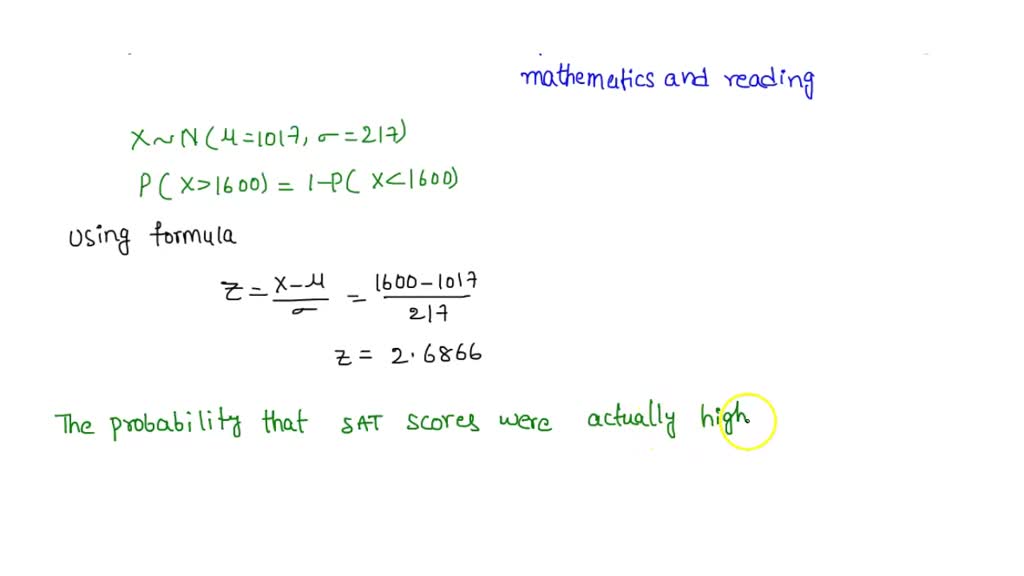 mathematics and reading
X~N(μ=1017, σ=217)
P(X>1600) = 1-P(X<1600)
Using formula
Z = X-μ/σ = 1600-1017/217
z = 2.6866
The probability that SAT scores were actually high